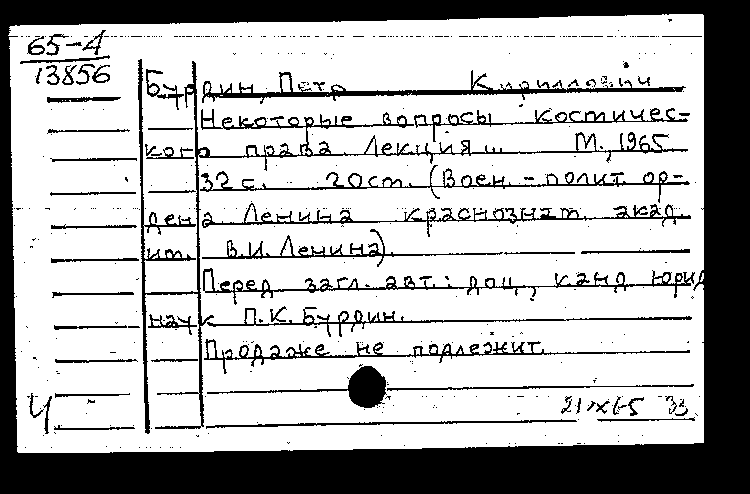 65-4
13856
Бурдин, Петр Кириллович
Некоторые вопросы костичес-
кого права. Лекция ... М., 1965
32 с. 20 ст. (Воен.-полит. ор-
дена Ленина краснознам. акад.
им. В.И. Ленина).
Перед загл. авт.: доц., канд. юрид
наук П.К. Бурдин.
Продаже не подлежит.
Ч 33